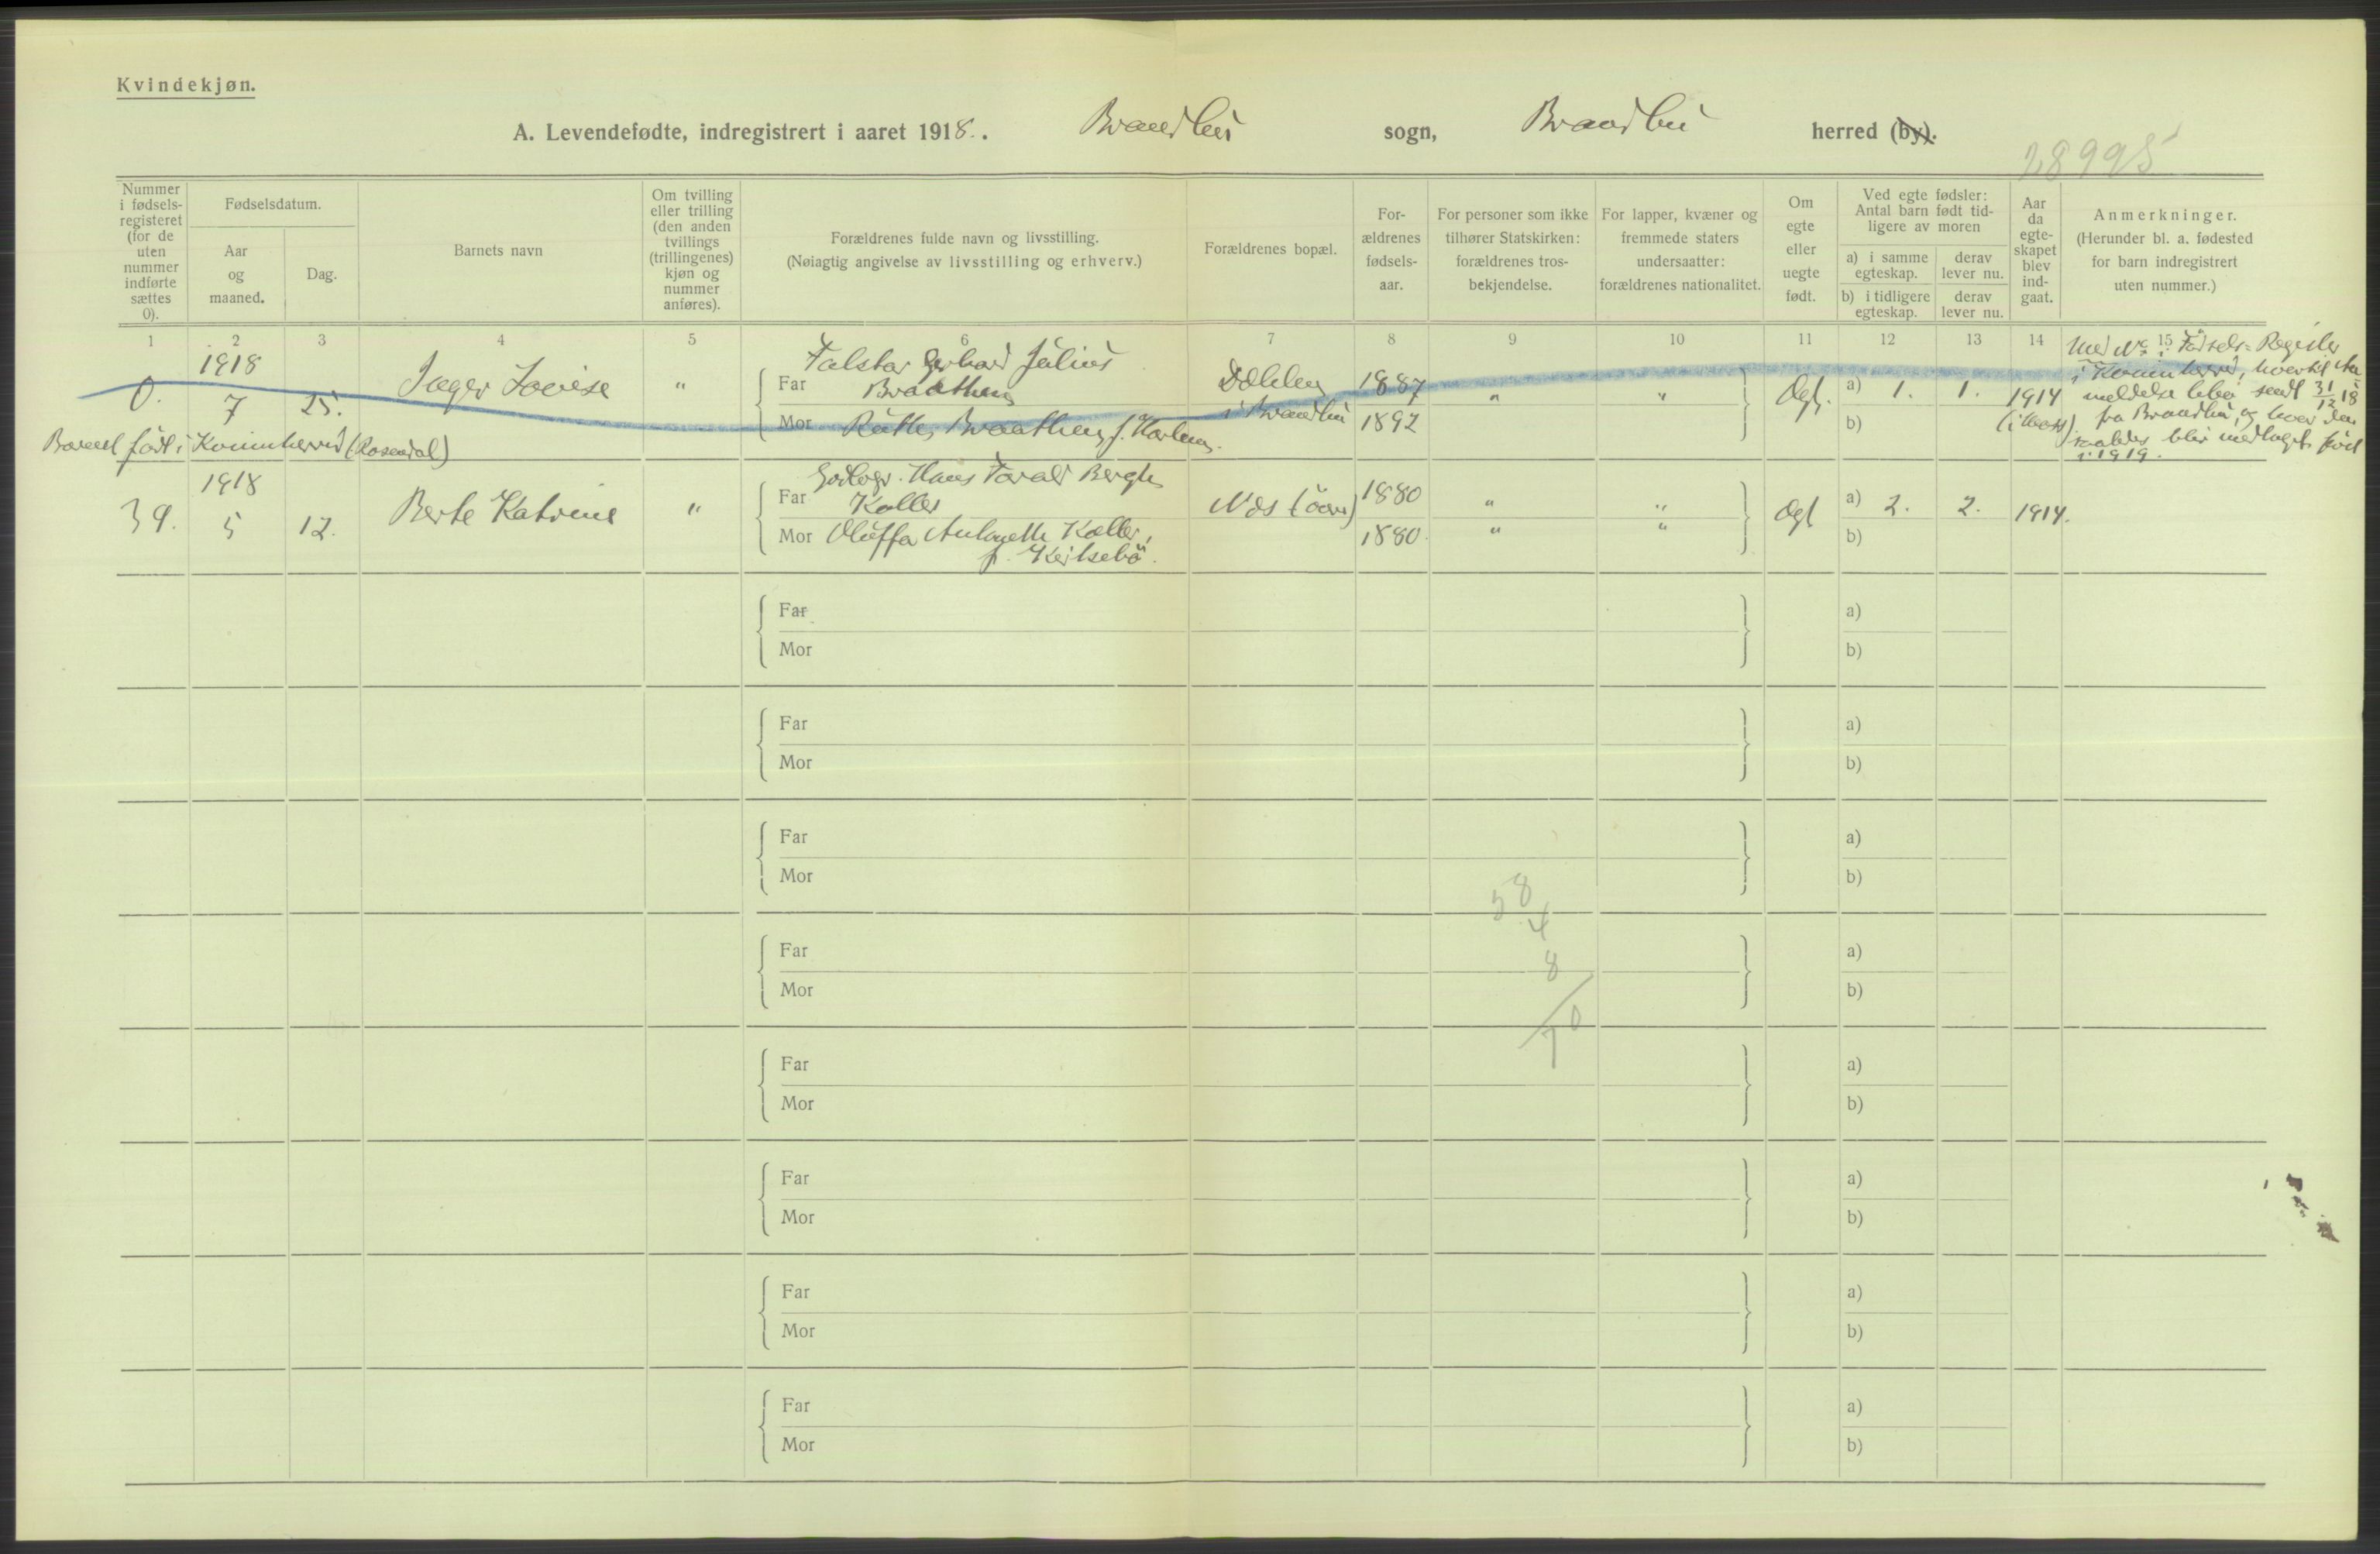 Kvindekjøn.
A. Levendefødte, indregistrert i aaret 1918. Brandbu sogn, Brandbu herred (by).
28995
Nummer i fødselsregisteret (for de uten nummer indførte sættes 0).
Fødselsdatum.
Aar og maaned.
Dag.
Barnets navn
Om tvilling eller trilling (den anden tvillings (trillingenes) kjøn og nummer anføres).
Forældrenes fulde navn og livsstilling.
(Nøiagtig angivelse av livsstilling og erhverv.)
Forældrenes bopæl.
For-ældrenes fødsels-aar.
For personer som ikke tilhører Statskirken: forældrenes tros-bekjendelse.
For lapper, kvæner og fremmede staters undersaatter: forældrenes nationalitet.
Om egte eller uegte født.
Ved egte fødsler: Antal barn født tid-ligere av moren
a) i samme egteskap.
derav lever nu.
b) i tidligere egteskap.
derav lever nu.
Aar da egte-skapet blev ind-gaat.
Anmerkninger.
(Herunder bl. a. fødested for barn indregistrert uten nummer.)
1 2 3 4 5 6 7 8 9 10 11 12 13 14 15
0. 1918 7 25. Inger Lovise "
Far Falstar Gerhard Julius Braathen
Mor Ruth Braathen, f.
i Brandbu
1887 " "
1892
Egt. a) 1. 1. 1914
b)
Med No i Fødsels-Register
i Kvinnherred, hvortil
meldelse blev sendt 31/12 18
fra Brandbu, og hvor den
blir medtaget født
i 1919.
Barnet født i Kvinnherred (Rosendal)
39. 1918 5 12. Berte Katrine "
Far Hans Koller
Mor Oluffa Antonette Koller,
f.
Næs
1880 " "
1880 " "
Egt a) 2. 2. 1914.
b)
Far a)
Mor b)
Far a)
Mor b)
Far a)
Mor b)
58
4
Far a)
8
Mor b)
70
Far a)
Mor b)
Far a)
Mor b)
Far a)
Mor b)
Far a)
Mor b)